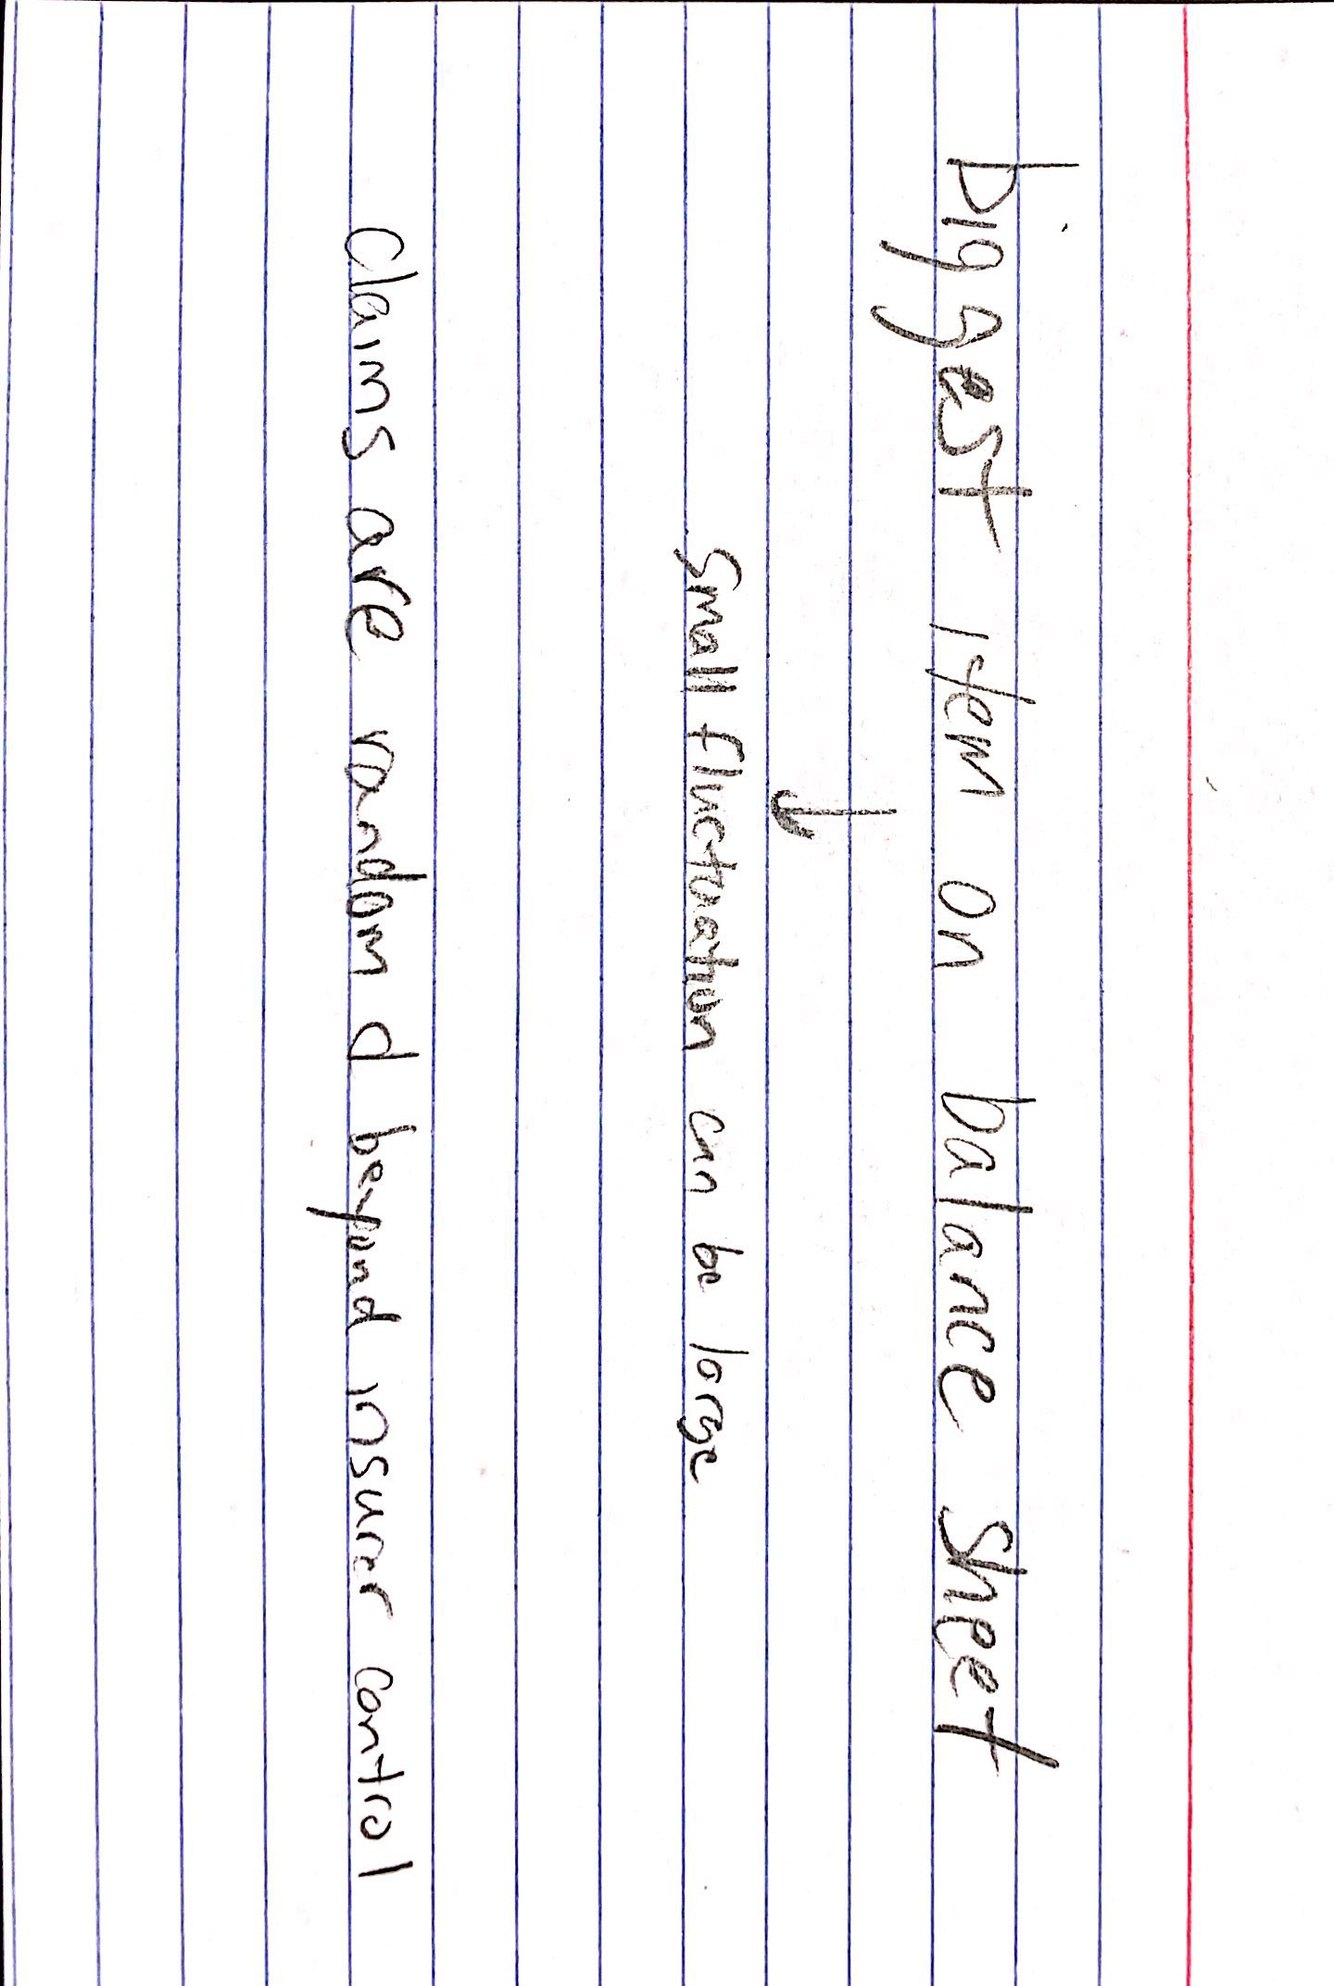 biggest item on balance sheet
↓
small fluctuation can be large
claims are random d beyond insurer control